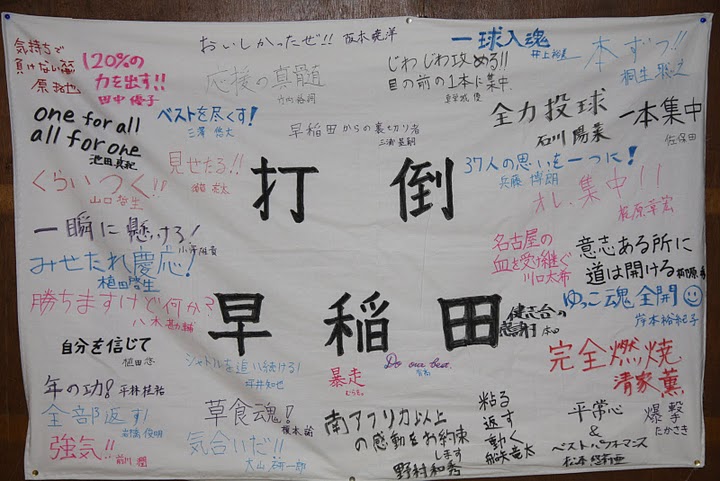 気持ちで
負けない
120%の
力を出す!!
田中優子
おいしかったぜ!! 坂本晃洋
応援の真髄
一球入魂
井上
一本ずつ!!
桐生
じわじわ攻める!!
目の前の1本に集中
全力投球
石川陽菜
一本集中
佐保田
one for all
all for one
池田真紀
ベストを尽くす!
三澤悠太
早稲田からの裏切り者
三浦
見せたる!!
37人の思いを一つに!
兵藤
くらいつく!!
山口啓生
打倒
オレ、集中!!
一瞬に懸けろ!
名古屋の
血を受け継ぐ
川口太希
意志ある所に
道は開ける
みせたれ慶応!
植田啓生
ゆっこ魂全開
岸本裕紀子
勝ちますけど何か?
八木
早稲田
健志台の
本田
自分を信じて
植田悠
シャトルを追い続ける!
平井知也
Do our best.
完全燃焼
清家薫
暴走
年の功! 平林佳祐
全部返す!
俊明
草食魂!
榎本
南アフリカ以上
の感動をお約束
します
野村和秀
粘る
返す
動く
竜太
平常心
&
ベストパフォーマンス
松本
爆撃
たかさき
強気!!
前川
気合いだ!!
大山研一郎